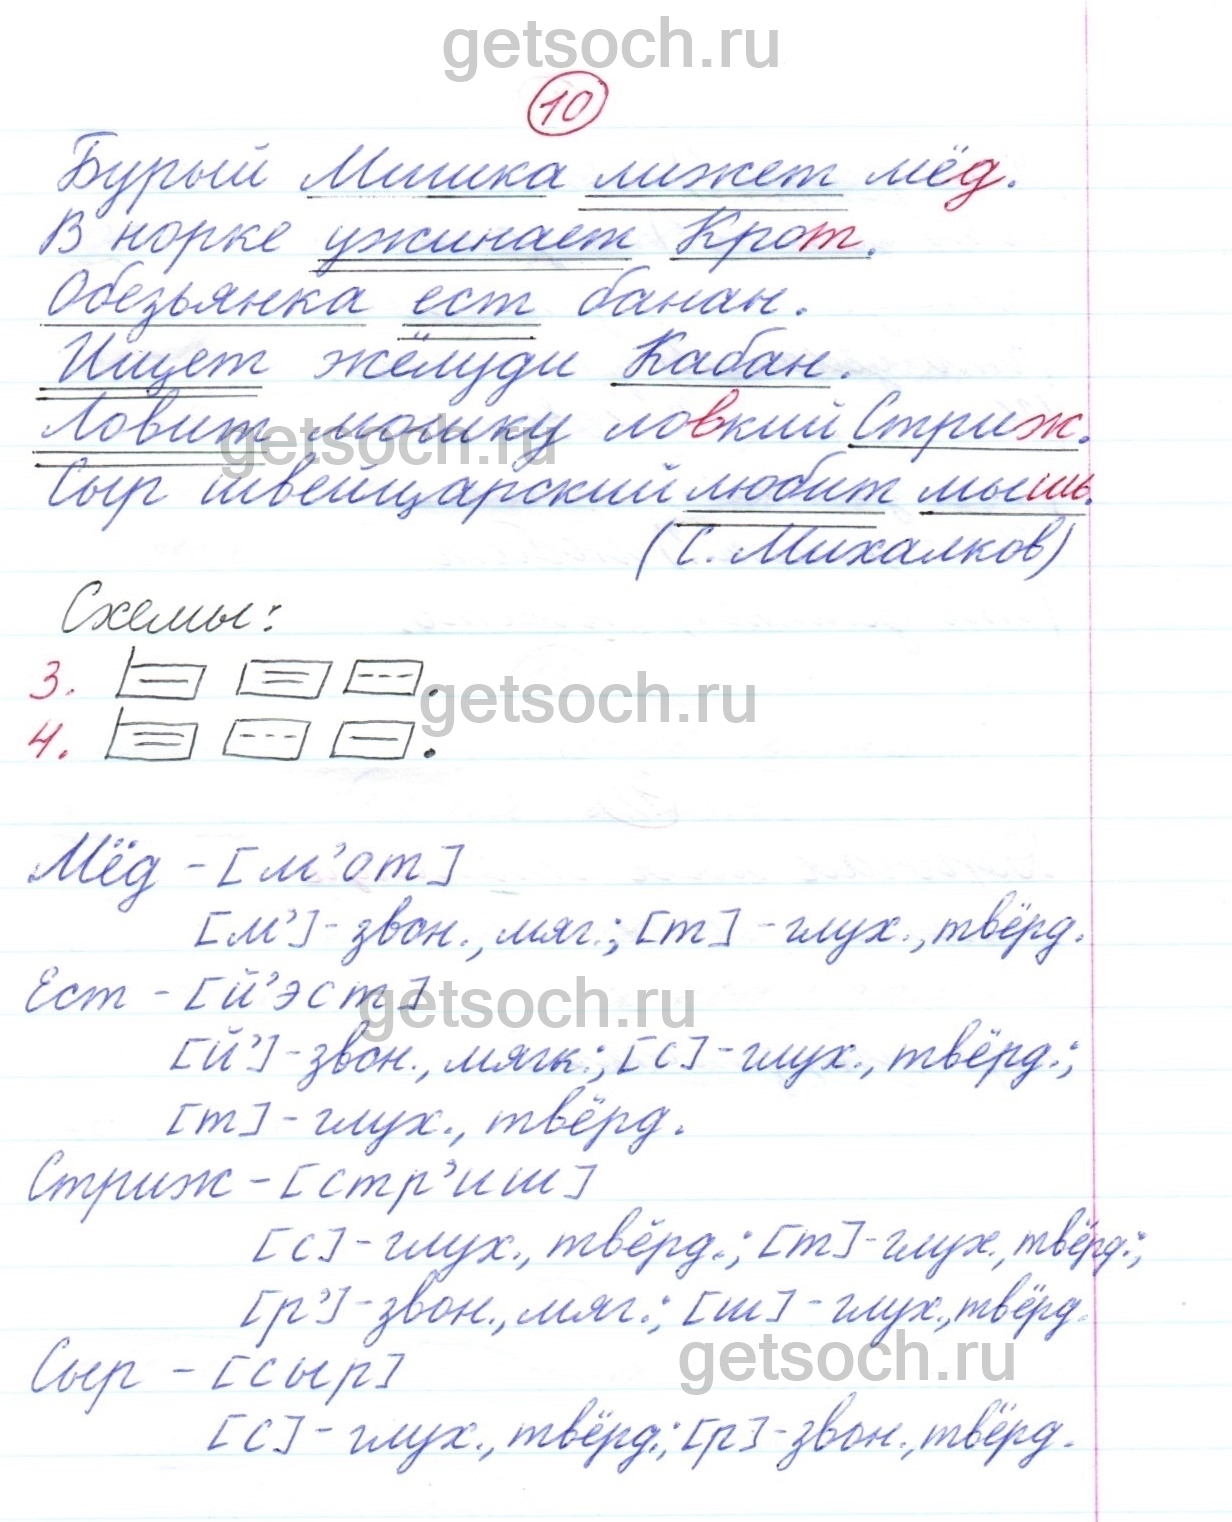 getsoch.ru
10
Бурый Мишка лижет мёд.
В норке ужинает Крот.
Обезьянка ест банан.
Ищет жёлуди Кабан.
Ловит мошку ловкий Стриж.
getsoch.ru
Сыр швейцарский любит мышь.
(С. Михалков)
Схемы:
3.
getsoch.ru
4.
Мёд - [м'от]
[м'] - звон., мяг.; [т] - глух., твёрд.
Ест - [й'эст]
getsoch.ru
[й'] - звон., мягк.; [с] - глух., твёрд.;
[т] - глух., твёрд.
Стриж - [стр'иш]
[с] - глух., твёрд.; [т] - глух., твёрд.;
[р'] - звон., мяг.; [ш] - глух., твёрд.
getsoch.ru
Сыр - [сыр]
[с] - глух., твёрд.; [р] - звон., твёрд.